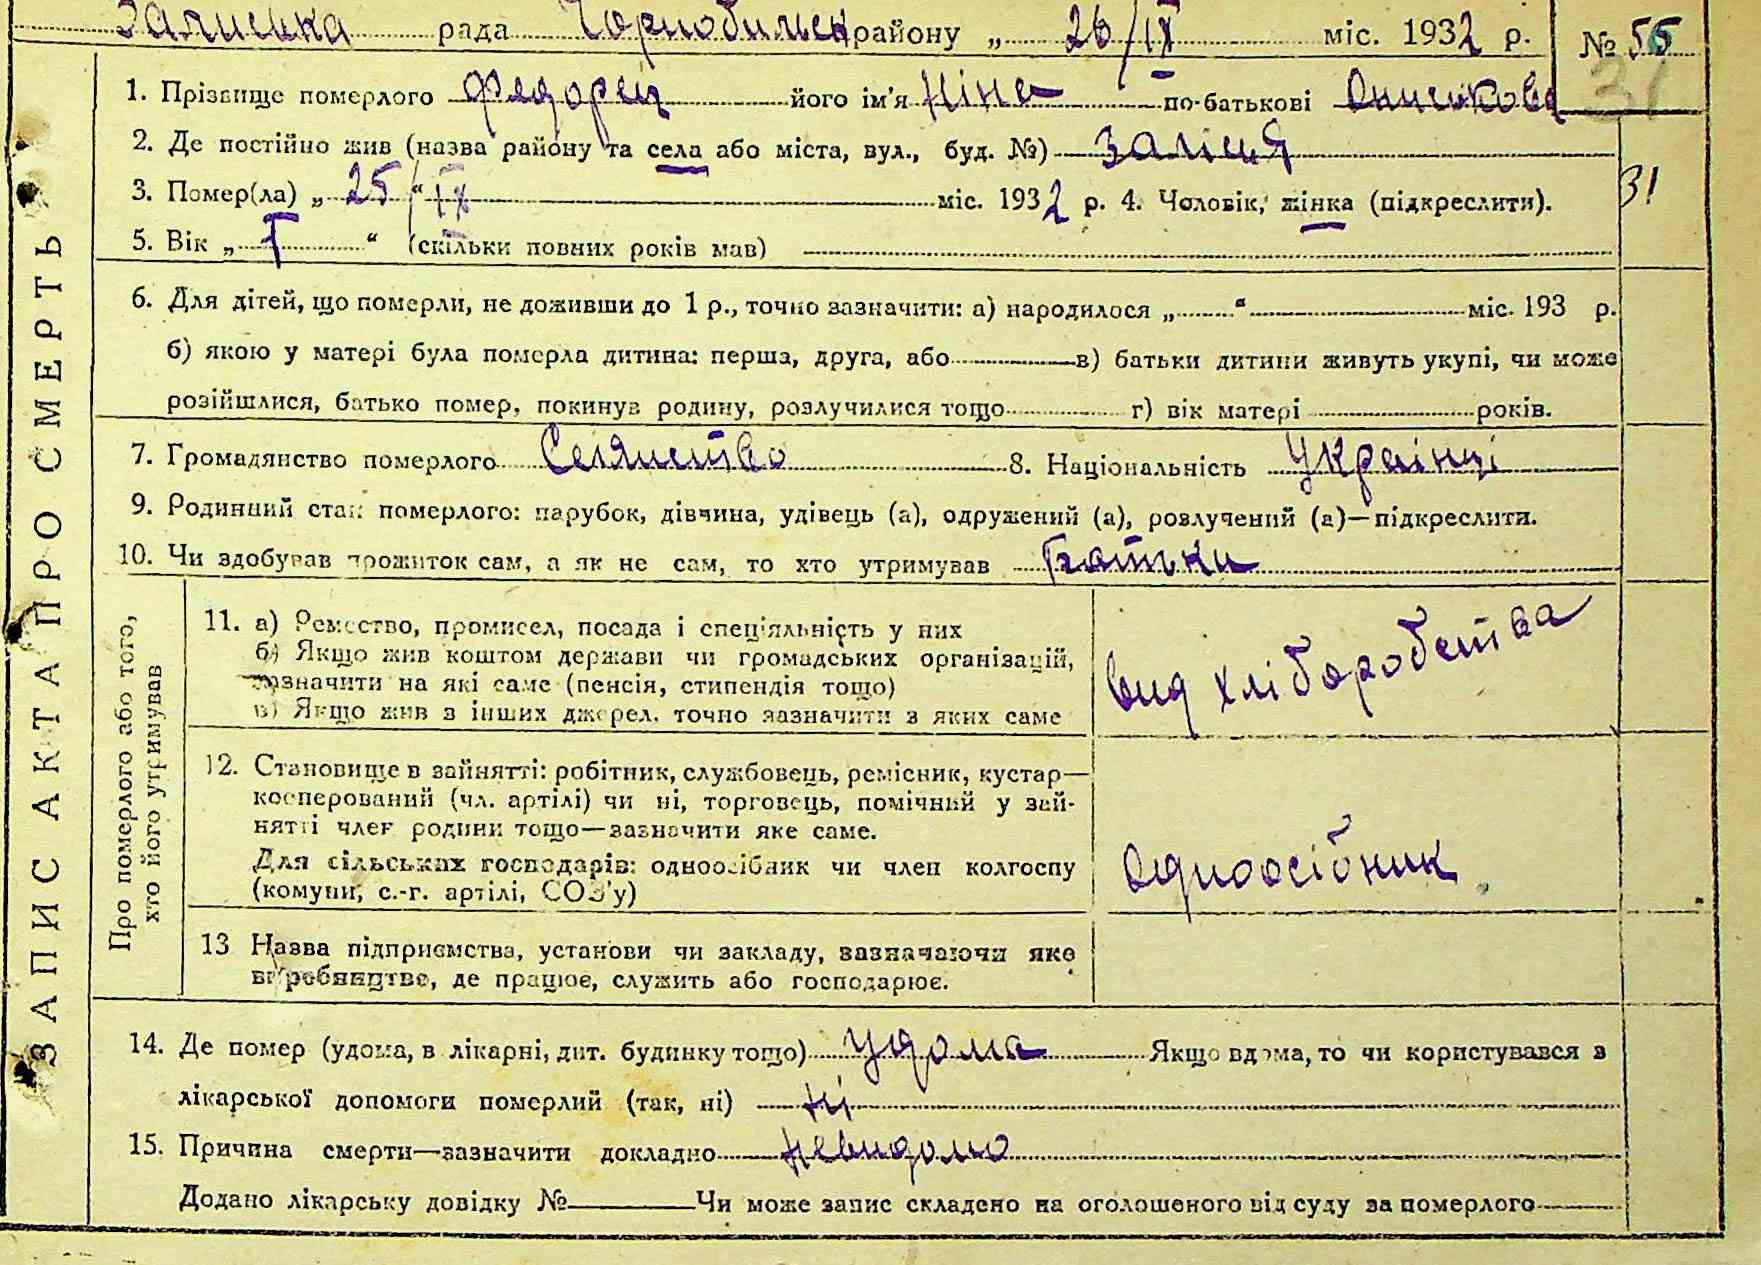 Залиська рада Чорнобильск району „ 26/IX міс. 1932 р. № 55
1. Прізвище померлого Федорец його ім'я Ніна по-батькові Ониськова
2. Де постійно жив (назва району та села або міста, вул., буд. №) Залісся
31
3. Помер(ла) „ 25/IX “ міс. 1932 р. 4. Чоловік, жінка (підкреслити).
5. Вік „ 1 “ (скільки повних років мав)
6. Для дітей, що померли, не доживши до 1 р., точно зазначити: а) народилося „ “ міс. 193 р.
б) якою у матері була померла дитина: перша, друга, або в) батьки дитини живуть укупі, чи може
розійшлися, батько помер, покинув родину, розлучилися тощо г) вік матері років.
7. Громадянство померлого Селянство 8. Національність Українці
9. Родинний стан померлого: парубок, дівчина, удівець (а), одружений (а), розлучений (а)—підкреслити.
10. Чи здобував прожиток сам, а як не сам, то хто утримував Батьки
ЗАПИС АКТА ПРО СМЕРТЬ
Про померлого або того,
хто його утримував
11. а) Ремество, промисел, посада і спеціяльність у них
б) Якщо жив коштом держави чи громадських організацій,
зазначити на які саме (пенсія, стипендія тощо)
в) Якщо жив з інших джерел, точно зазначити з яких саме
вид хліборобства
12. Становище в зайнятті: робітник, службовець, ремісник, кустар—
косперований (чл. артілі) чи ні, торговець, помічний у зай-
нятті член родини тощо—зазначити яке саме.
Для сільських господарів: одноосібник чи член колгоспу
(комуни, с.-г. артілі, СОЗ'у)
Одноосібник
13 Назва підприємства, установи чи закладу, зазначаючи яке
виробництво, де працює, служить або господарює.
14. Де помер (удома, в лікарні, дит. будинку тощо) Удома Якщо вдома, то чи користувався в
лікарської допомоги померлий (так, ні) ні
15. Причина смерти—зазначити докладно невидомо
Додано лікарську довідку № Чи може запис складено на оголошеного від суду за померлого